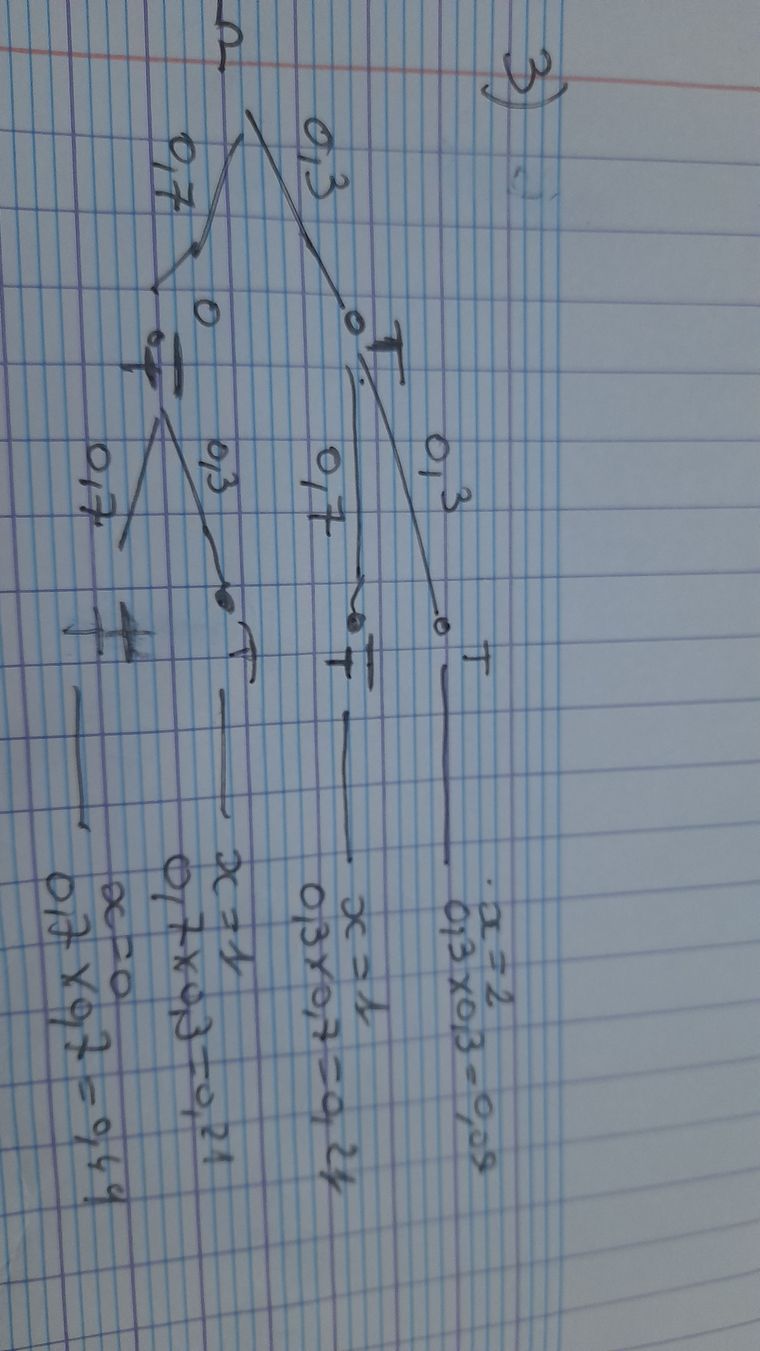 3)
Ω
0,3
T
0,3
T
x = 2
0,3 x 0,3 = 0,09
0,7
T̅
x = 1
0,3 x 0,7 = 0,21
0,7
T̅
0,3
T
x = 1
0,7 x 0,3 = 0,21
0,7
T̅
x = 0
0,7 x 0,7 = 0,49